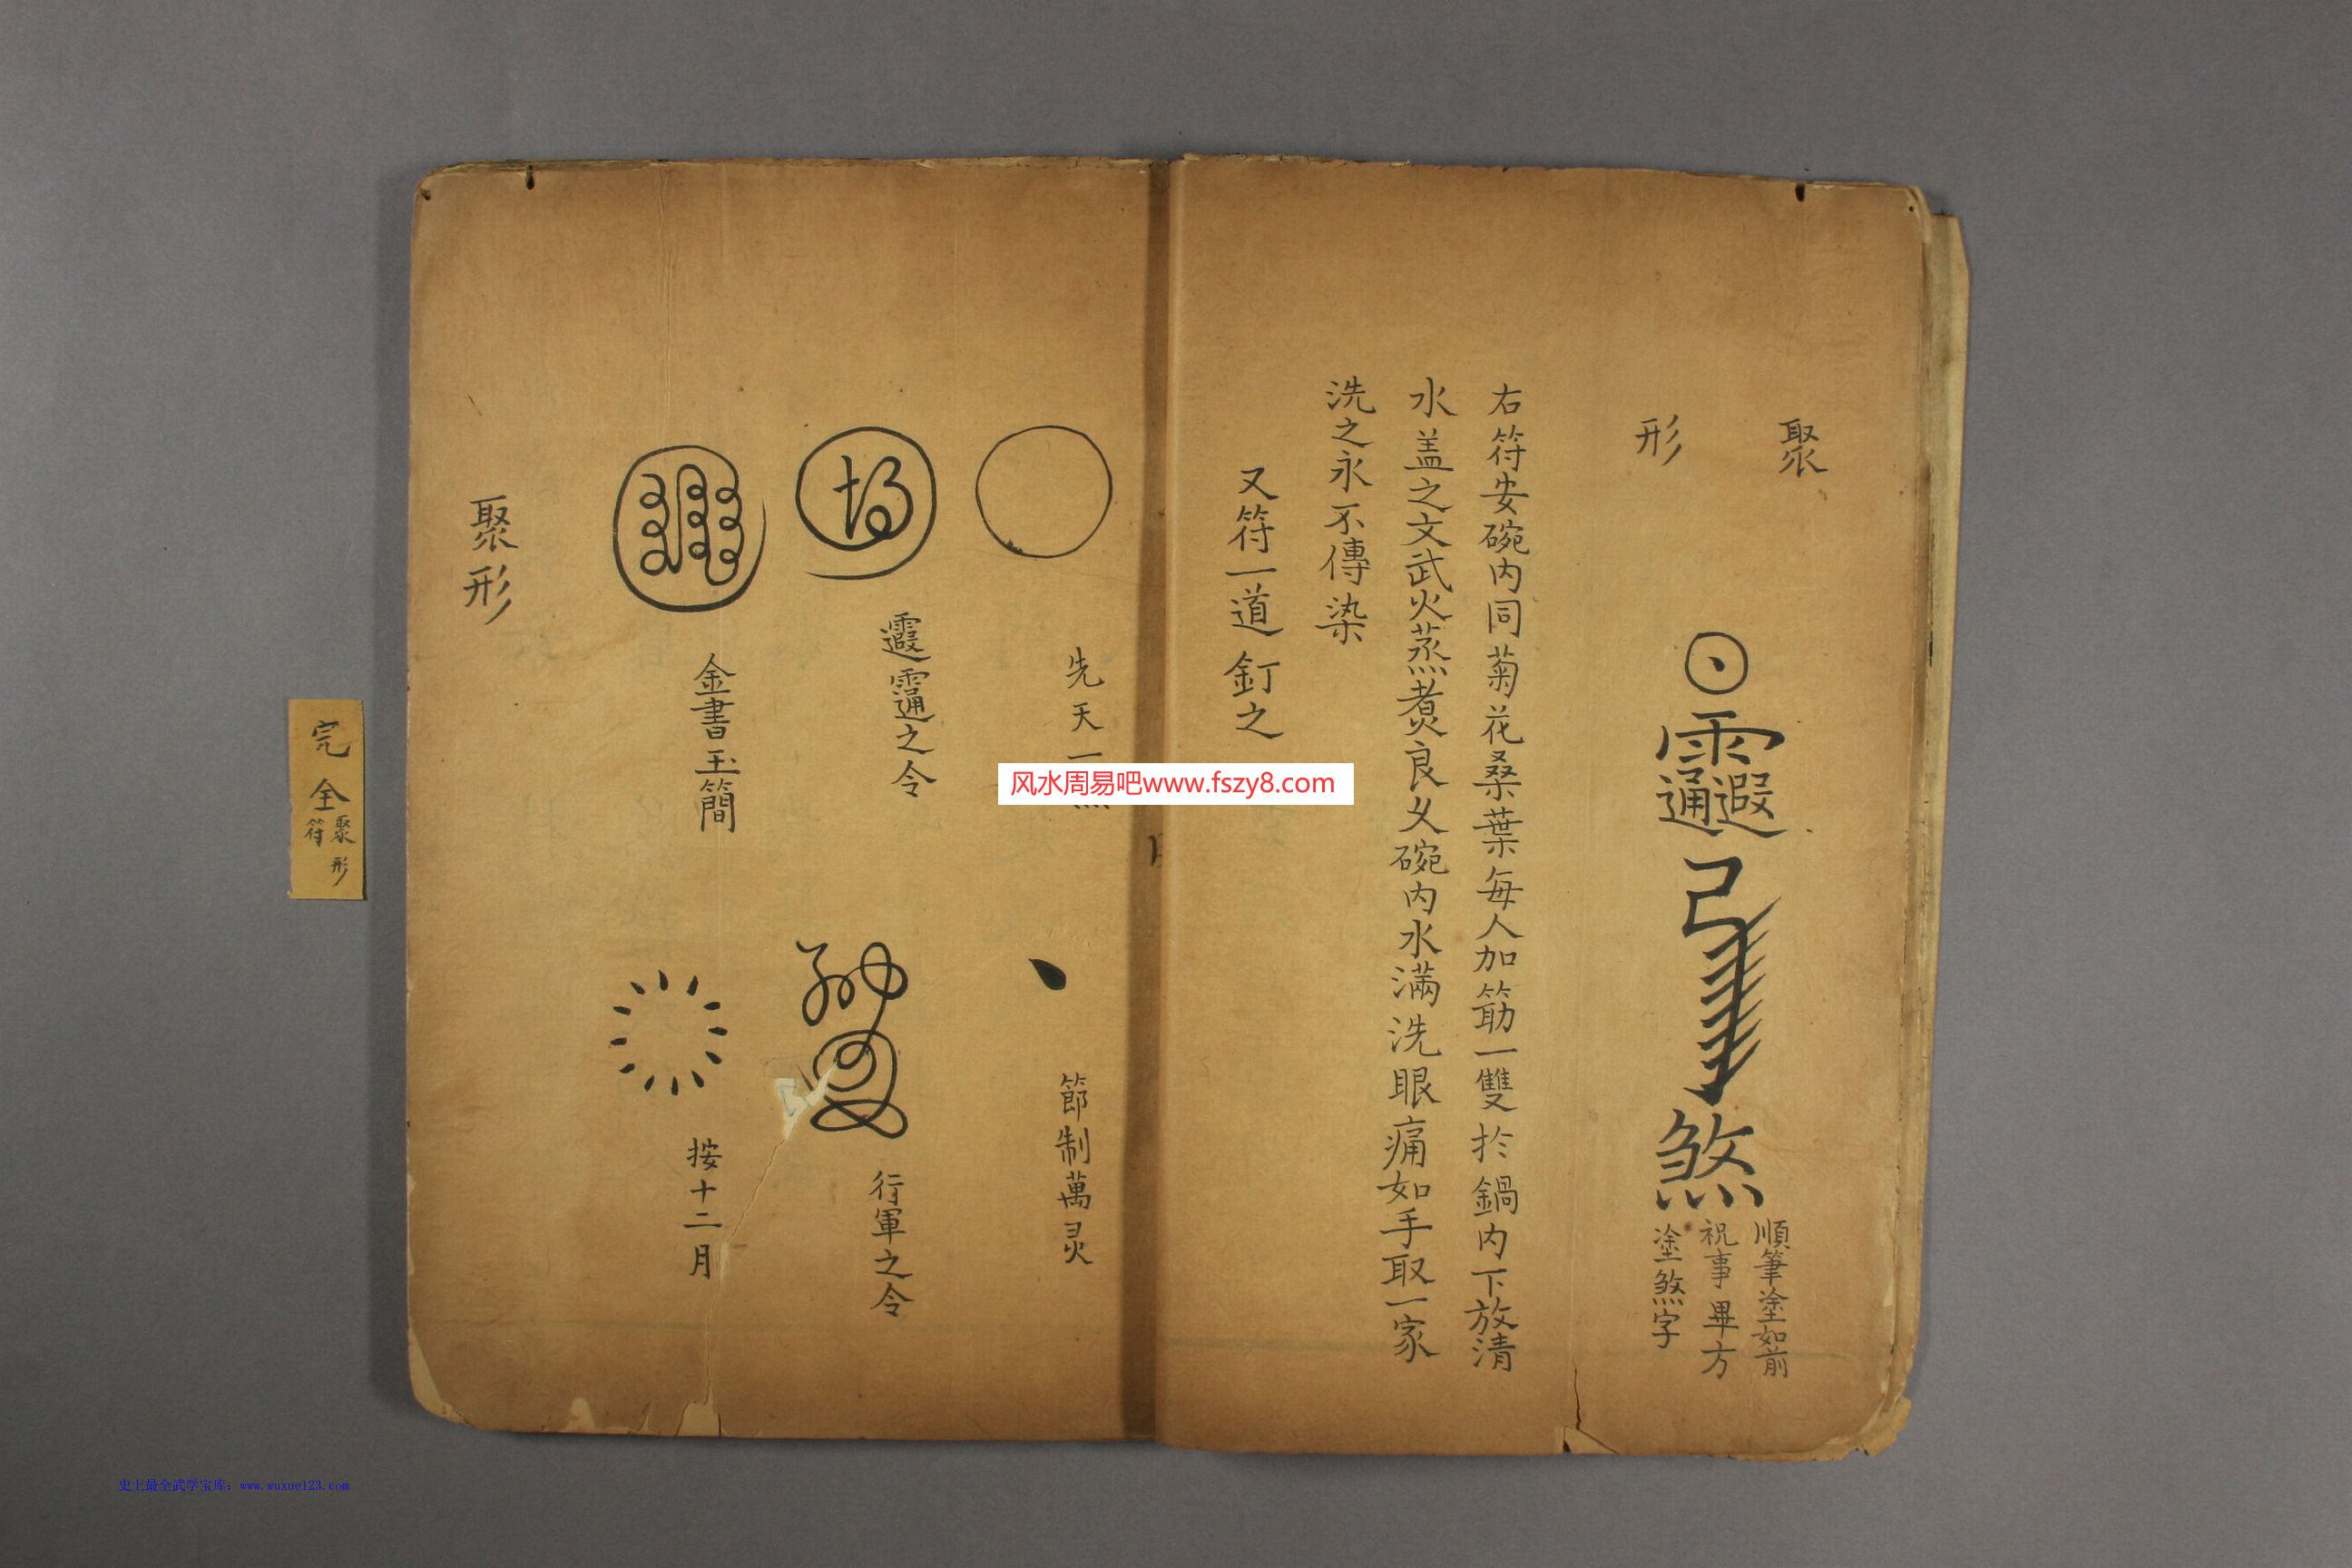 聚
形
煞
順筆塗如前
祝事畢方
塗煞字
右符安碗内同菊花桑葉每人加筯一雙於鍋内下放清
水盖之文武火蒸煮良久碗内水滿洗眼痛如手取一家
洗之永不傳染
又符一道釘之
先天一
節制萬灵
之令
行軍之令
金書玉簡
按十二月
聚形
完全
聚形
符
风水周易吧www.fszy8.com
史上最全武学宝库：www.wuxue123.com